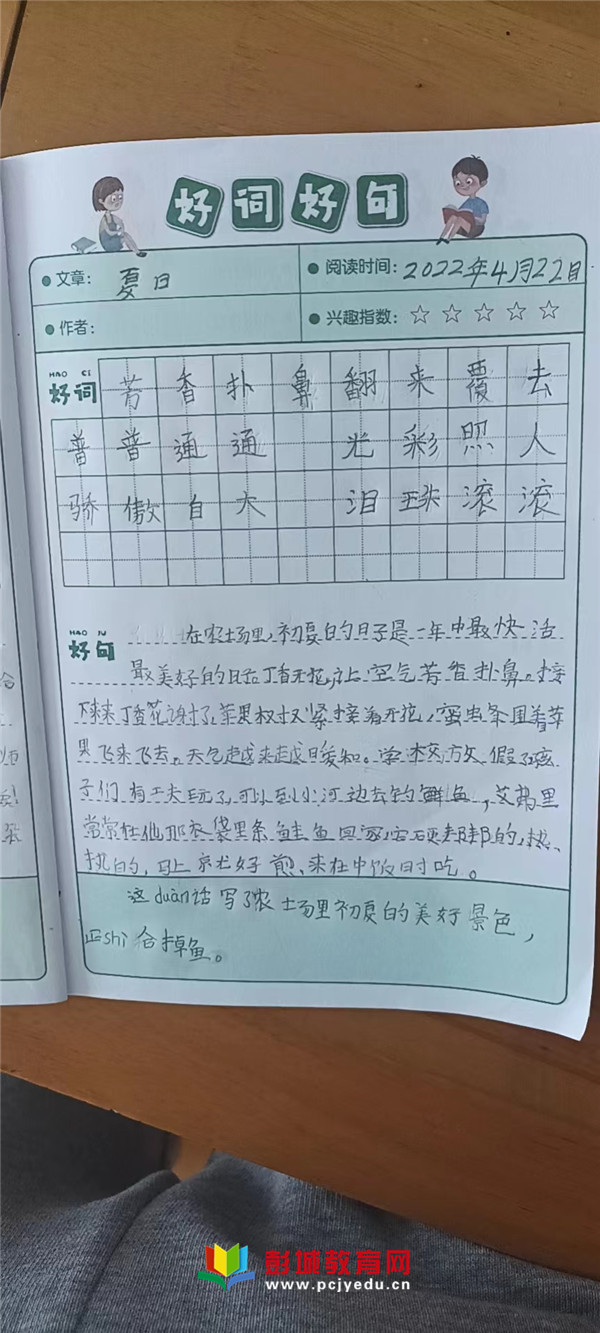 好词好句
文章: 夏日
阅读时间: 2022年4月22日
作者:
兴趣指数: ☆ ☆ ☆ ☆ ☆
HAO CI
好词
芳香扑鼻翻来覆去
普普通通 光彩照人
骄傲自大 泪珠滚滚
HAO JU
好句
在农场里,初夏的日子是一年中最快活
最美好的日子丁香开花,让空气芳香扑鼻。接
下来丁香花谢了,苹果树又紧接着开花,蜜虫条围着苹
果飞来飞去。天气越来越日暖和。学校放假了孩
子们有于夫玩了,可以到小河边去钓鲜鱼,艾弗里
常常在他那衣袋里条鲑鱼回家,它硬邦邦的,热、
扎的,马上京尤好煎、来在中饭日寸吃。
这duàn话写了农场里初夏的美好景色,
正shì合掉鱼。
彭城教育网
www.pcjyedu.cn